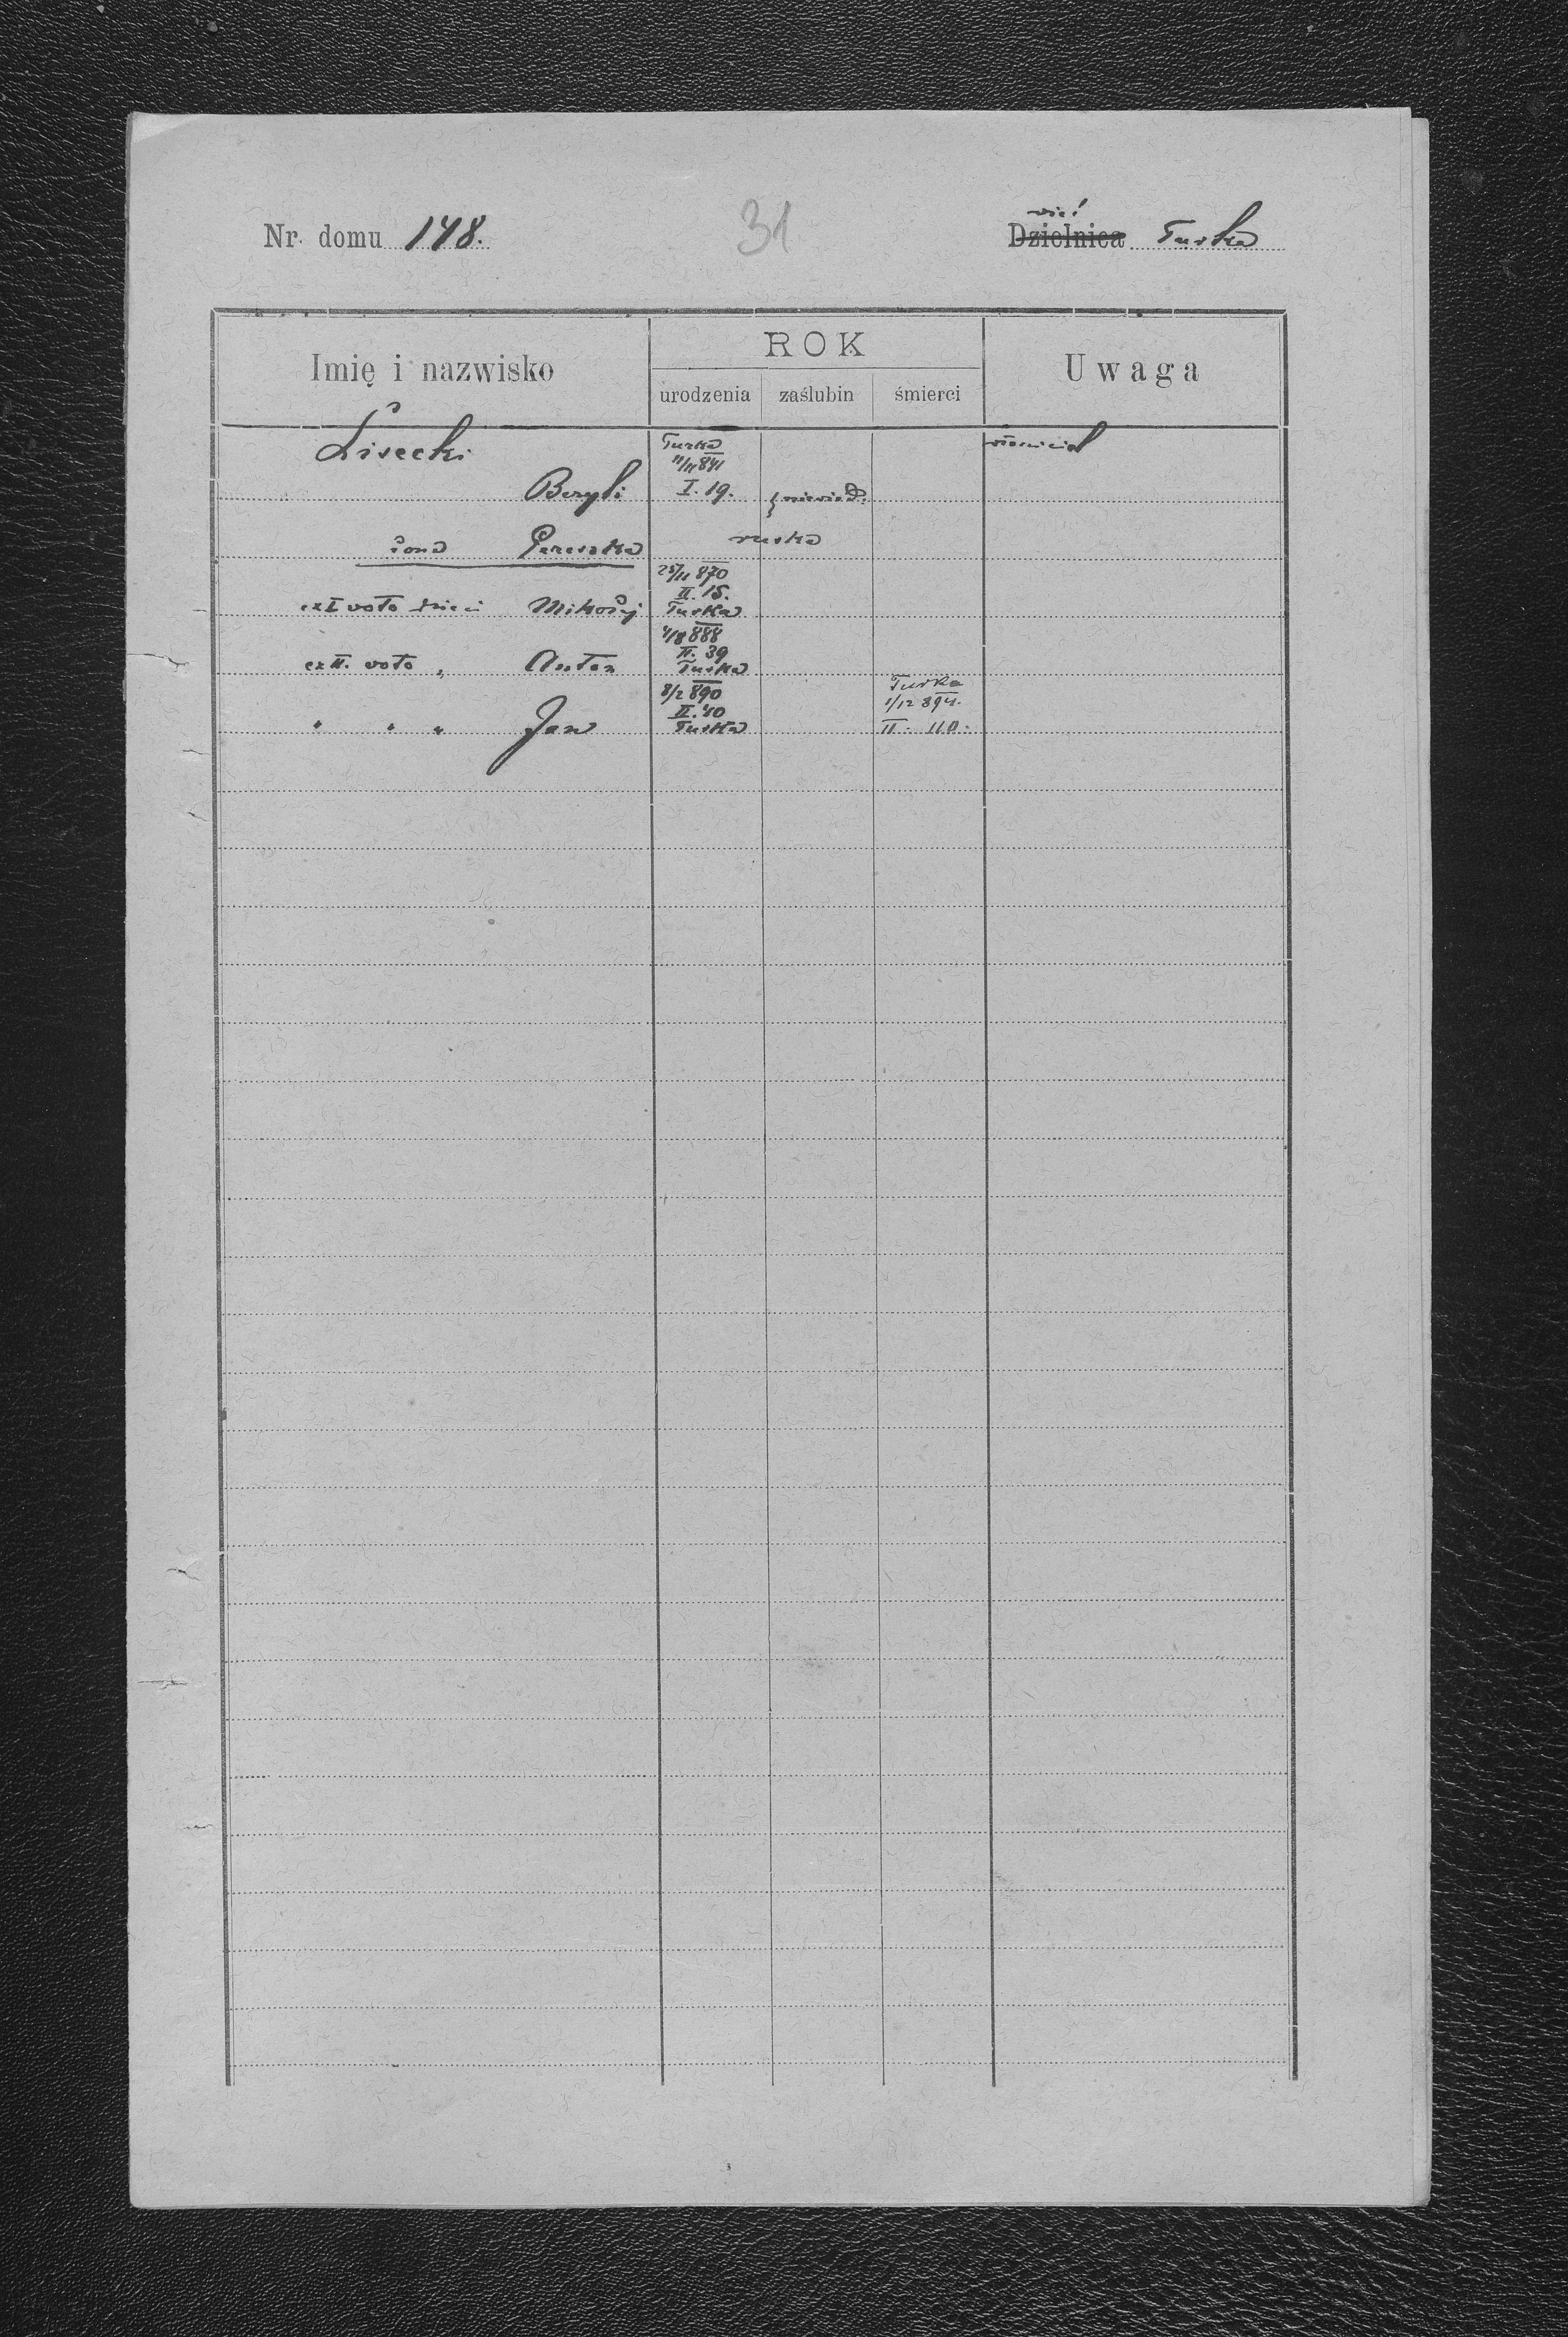 31
Nr. domu 148.
wieś
Dzielnica Turka
Imię i nazwisko
ROK
urodzenia zaślubin śmierci
Uwaga
Lisecki
Turka
11/11 841
I. 19.
Bazyli
niewiad.
włościciel
żona Paraszka
ruska
25/11 870
II. 15.
Turka
ex I voto dzieci Mikołaj
4/8 888
II. 39
Turka
ex II. voto " Anton
8/2 890
II. 40
Turka
" " " Jan
Turka
1/12 894.
II. 110.